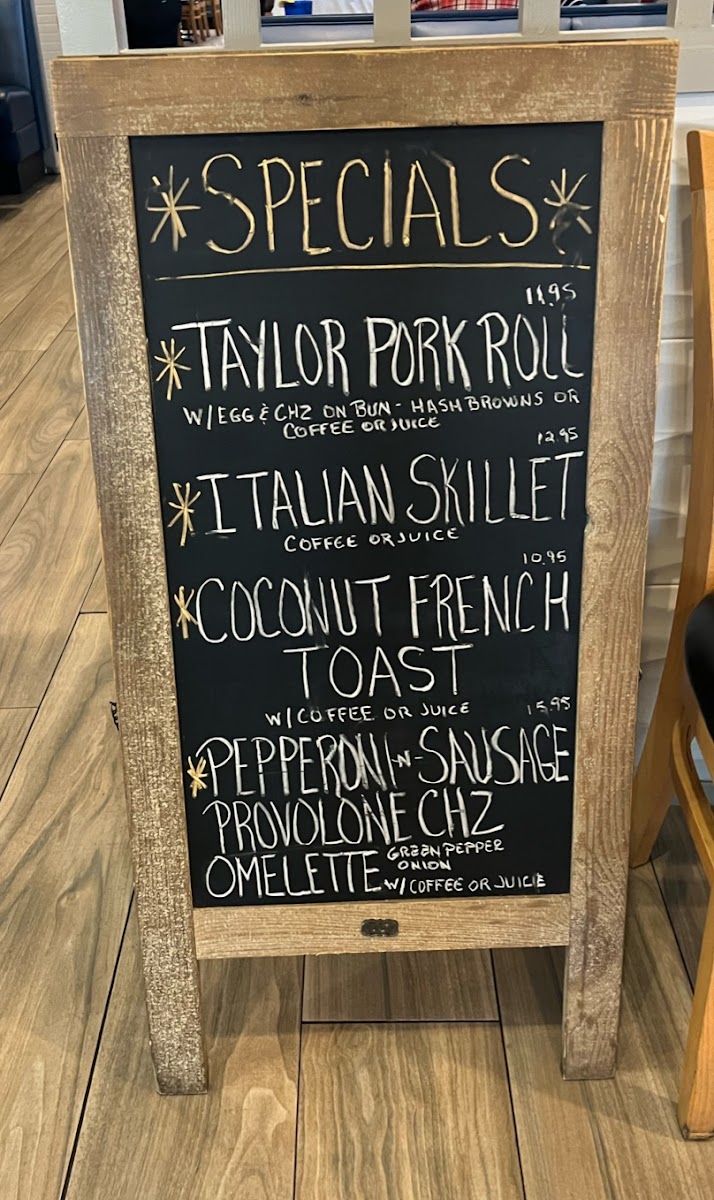 *SPECIALS*
11.95
*TAYLOR PORK ROLL
W/EGG & CHZ ON BUN - HASHBROWNS OR
COFFEE OR JUICE
12.95
*ITALIAN SKILLET
COFFEE OR JUICE
10.95
*COCONUT FRENCH
TOAST
W/COFFEE OR JUICE
15.95
*PEPPERONI-N-SAUSAGE
PROVOLONE CHZ
OMELETTE GREEN PEPPER
ONION
W/COFFEE OR JUICE